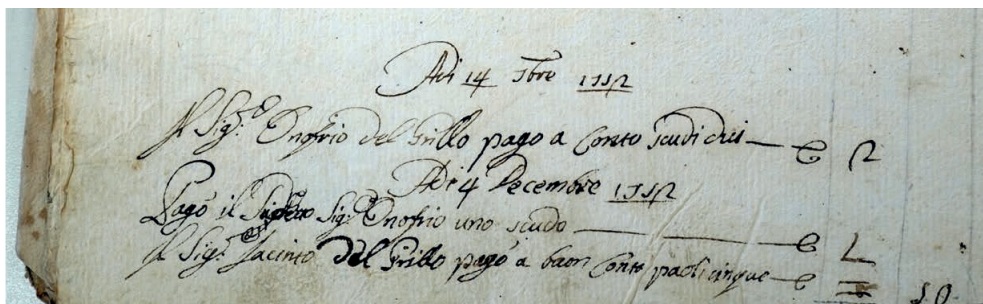 Adi 14 9bre 1712
Il Sig.re Onofrio del Grillo pagò a Conto scudi dui — 2
Adi 4 Decembre 1712
Pagò il Sig.re Onofrio uno scudo —
Il Sig.re Jacinto del Grillo pagò a buon Conto paoli cinque —